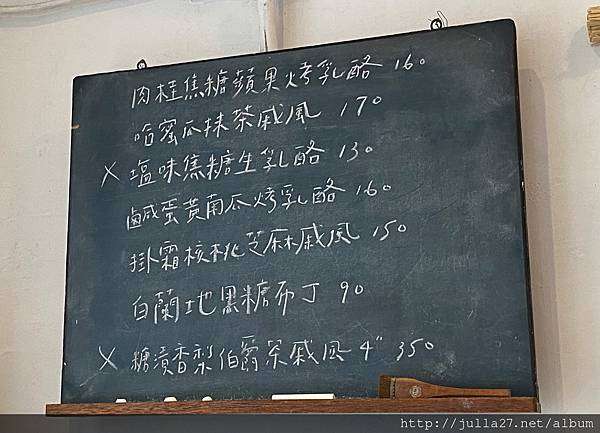 肉桂焦糖蘋果烤乳酪 160
哈蜜瓜抹茶戚風 170
X 塩味焦糖生乳酪 130
鹹蛋黃南瓜烤乳酪 160
掛霜核桃芝麻戚風 150
白蘭地黑糖布丁 90
X 糖漬香梨伯爵茶戚風 4" 350
http://julla27.net/album